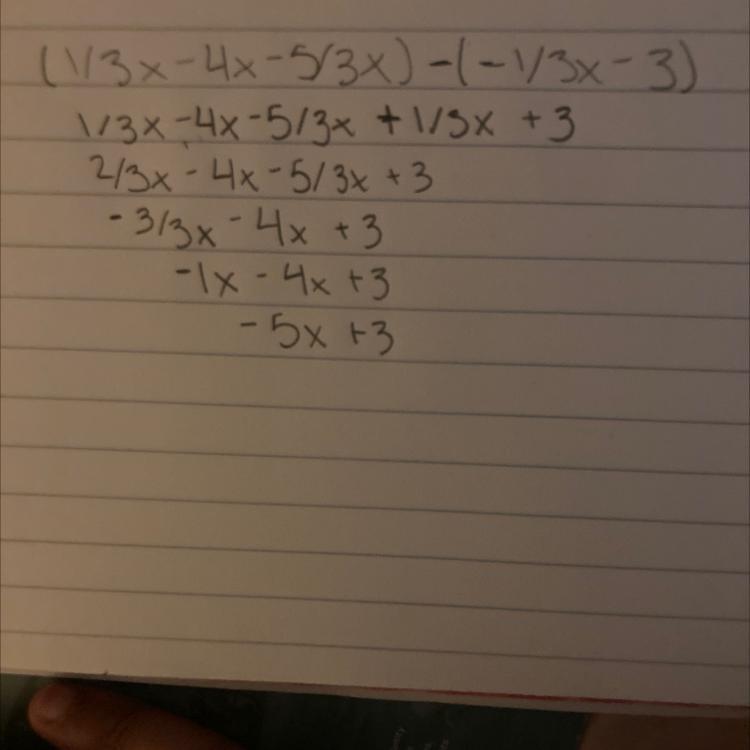 (1/3x-4x-5/3x)-(-1/3x-3)
1/3x-4x-5/3x+1/3x+3
2/3x-4x-5/3x+3
-3/3x-4x+3
-1x-4x+3
-5x+3